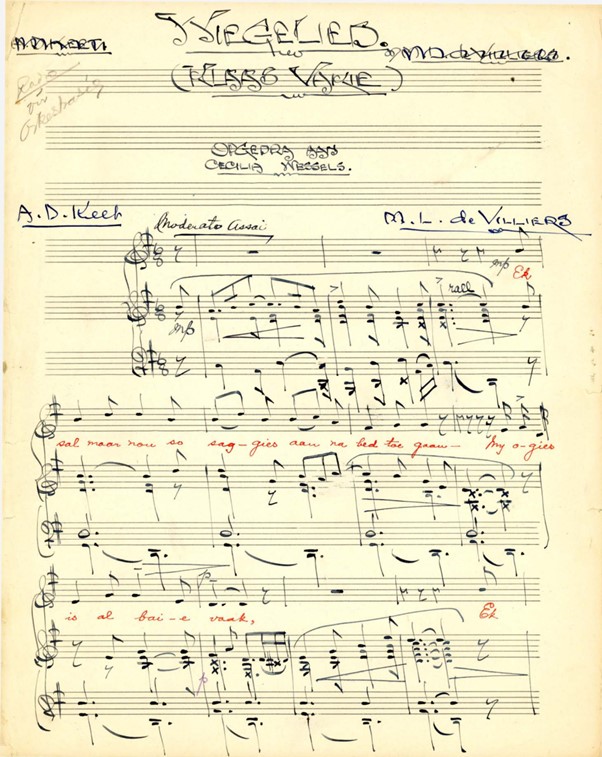 WIEGELIED.
A.D. KEET.
M.L. de VILLIERS.
(KLAAS VAKIE)
Radio
OPGEDRA AAN
CECILIA WESSELS.
A. D. Keet
M. L. de VILLIERS
Moderato Assai
mp
Ek
mp
rall
sal maar nou so sag-gies aan na bed toe gaan- My o-gies
p
is al bai-e vaak, Ek
p